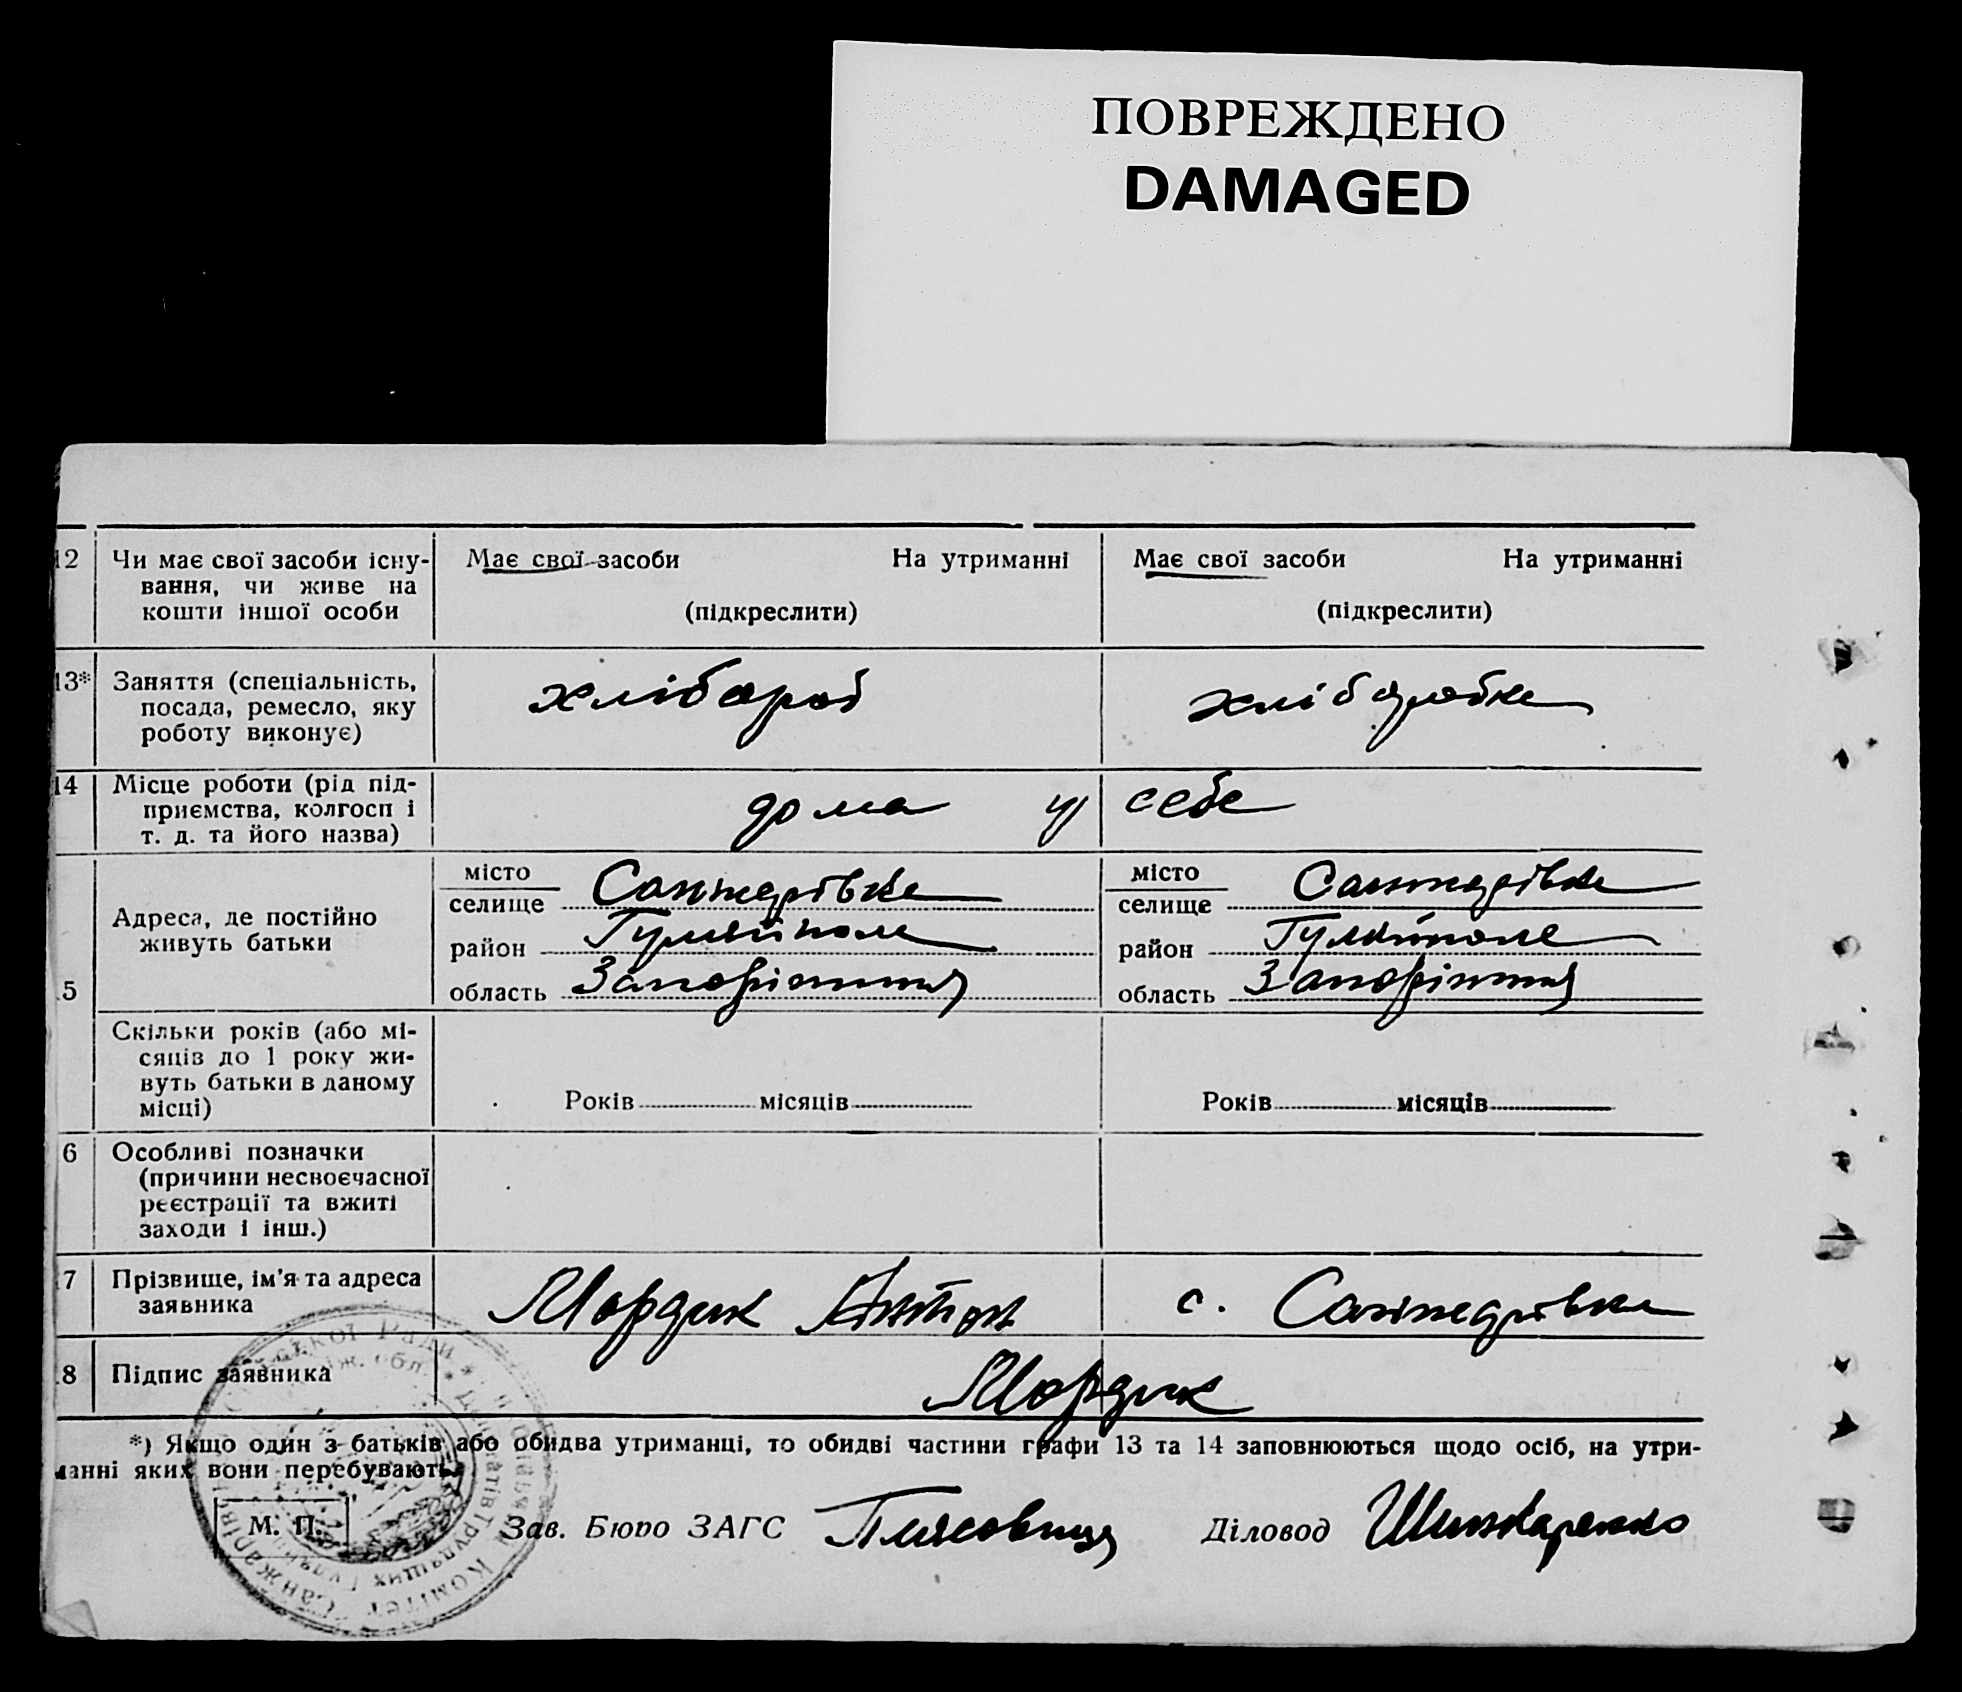 ПОВРЕЖДЕНО
DAMAGED
12 Чи має свої засоби існу- Має свої засоби На утриманні Має свої засоби На утриманні
вання, чи живе на
кошти іншої особи (підкреслити) (підкреслити)
13* Заняття (спеціальність, хлібороб хліборобка
посада, ремесло, яку
роботу виконує)
14 Місце роботи (рід під- дома у себе
приємства, колгосп і
т. д. та його назва)
місто місто
селище Санжарівка селище Санжарівка
Адреса, де постійно
живуть батьки район Гуляйполе район Гуляйполе
5 область Запоріжжя область Запоріжжя
Скільки років (або мі-
сяців до 1 року жи-
вуть батьки в даному Років місяців Років місяців
місці)
6 Особливі позначки
(причини несвоєчасної
реєстрації та вжиті
заходи і інш.)
7 Прізвище, ім'я та адреса Мордик Антон с. Санжарівка
заявника
8 Підпис заявника Мордик
*) Якщо один з батьків або обидва утриманці, то обидві частини графи 13 та 14 заповнюються щодо осіб, на утри-
манні яких вони перебувають.
М. П. Зав. Бюро ЗАГС Діловод Шинкаренко